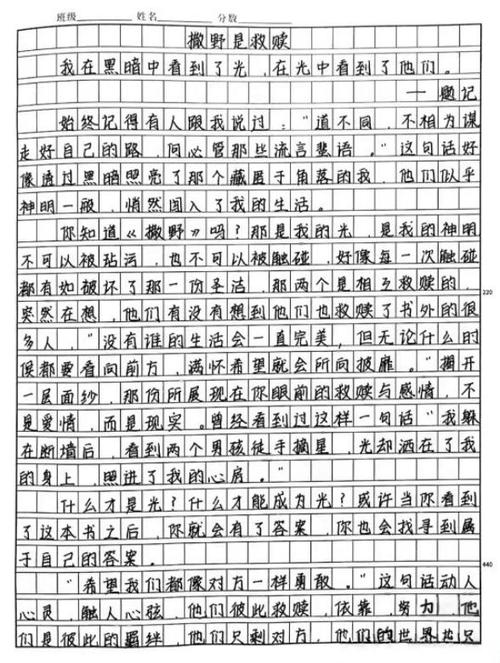 班级 姓名 分数
撒野是救赎
我在黑暗中看到了光，在光中看到了他们。
—题记
始终记得有人跟我说过：“道不同，不相为谋
走好自己的路，何必管那些流言蜚语。”这句话好
像透过黑暗照亮了那个藏匿于角落的我，他们似乎
神明一般，悄然闯入了我的生活。
你知道《撒野》吗？那是我的光，是我的神明
不可以被玷污，也不可以被触碰，好像每一次触碰
都有如破坏了那一份圣洁，那两个是相互救赎的，
220
突然在想，他们有没有想到他们也救赎了书外的很
多人，“没有谁的生活会一直完美，但无论什么时
候都要看向前方，满怀希望就会所向披靡。”揭开
一层面纱，那份所展现在你眼前的救赎与感情，不
是爱情，而是现实。曾经看到过这样一句话“我躲
在断墙后，看到两个男孩徒手摘星，光却洒在了我
的身上，照进了我的心房。”
什么才是光？什么才能成为光？或许当你看到
了这本书之后，你就会有了答案，你也会找寻到属
于自己的答案。
440
“希望我们都像对方一样勇敢。”这句话动人
心灵，触人心弦，他们彼此救赎，依靠，努力，他
们是彼此的羁绊，他们只剩对方，他们的世界